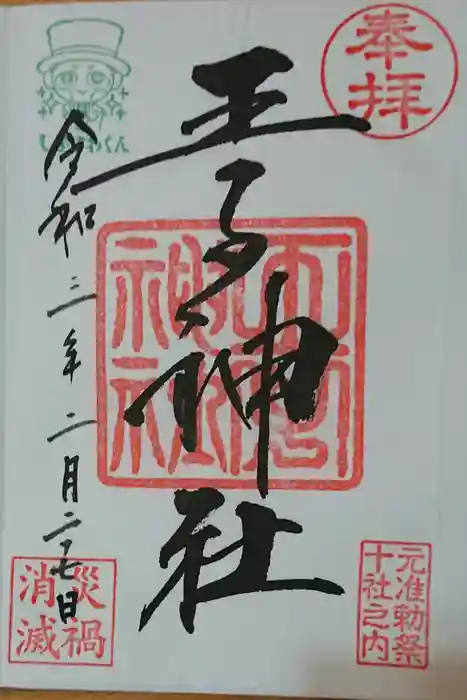 奉拝
王子神社
元准勅祭
十社之内
令和三年二月二十七日
災禍
消滅